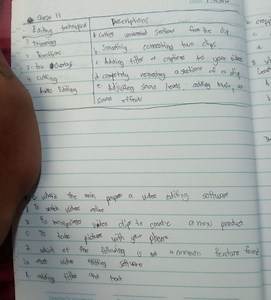 class 11
Editing techniques
Descriptions
1. Trimming
a. Cutting unwanted sections from the clip
2. Transitions
b. Smoothly connecting two clips
3. Text Overlays
c. Adding titles or captions to your video
4. Cutting
d. completely removing a sections of a clip
Audio Editing
e. Adjusting sound levels adding music, or
sound effects
6. What's the main purpose a video editing software
A. To watch videos online
B. To manipulate video clip to create a new product
C. To take picture with your phone
7. which of the following is not a common feature found
in most video editing software
A. adding titles and text